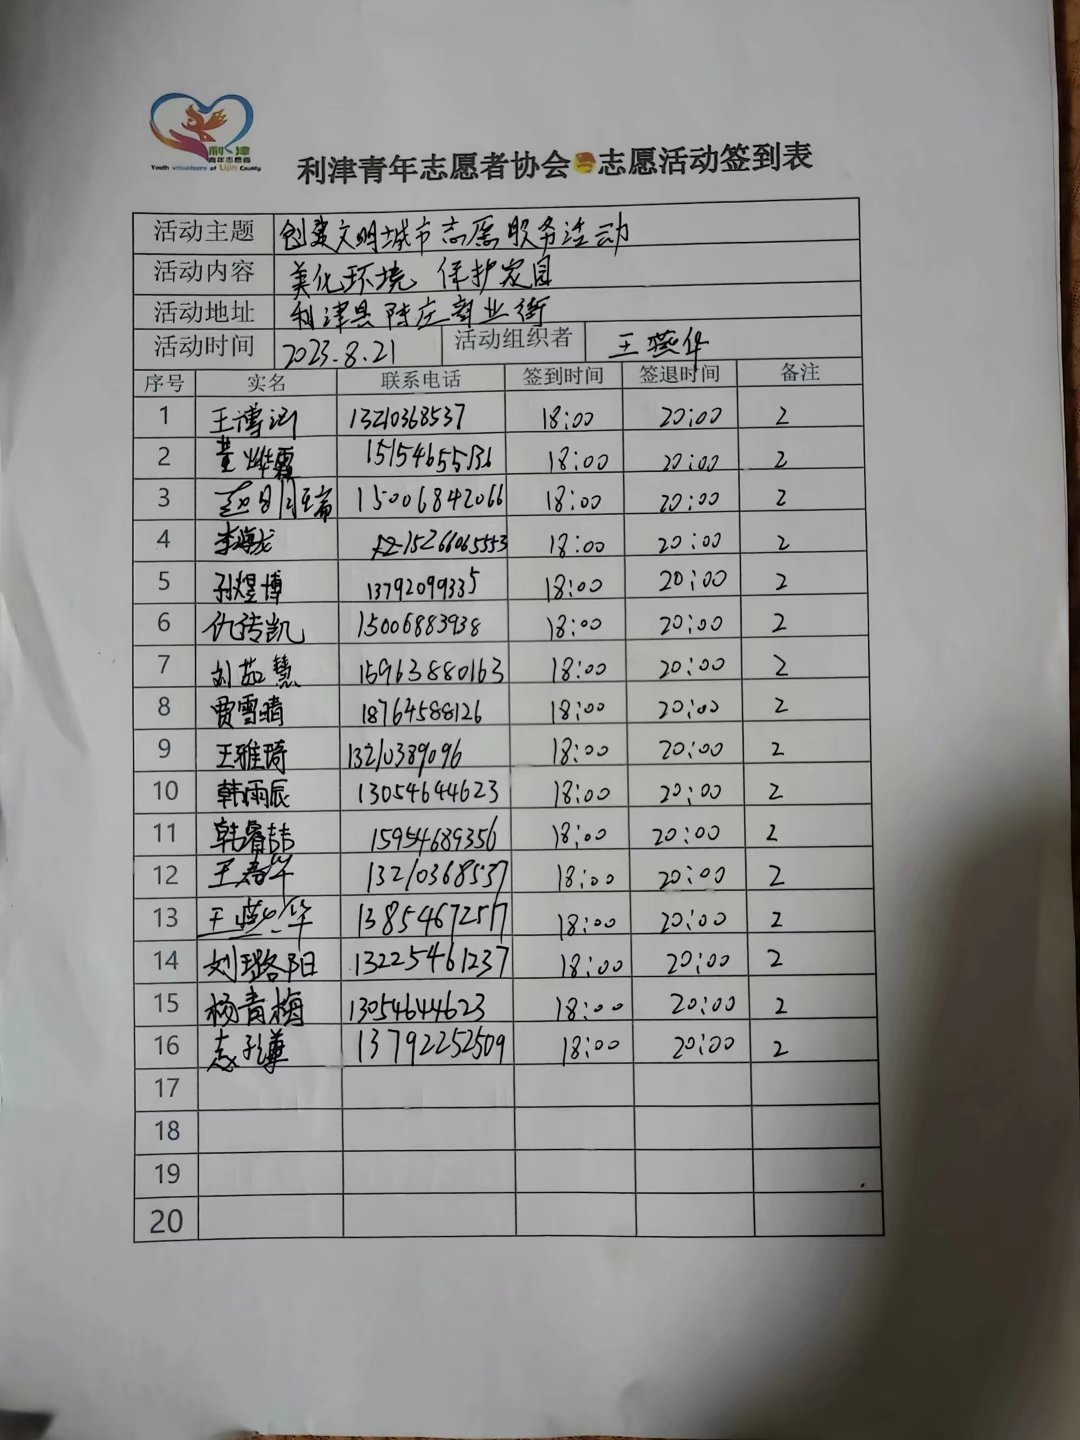 利津
青年志愿者
Youth volunteers of Lijin County
利津青年志愿者协会志愿活动签到表
活动主题 创建文明城市志愿服务活动
活动内容 美化环境 保护家园
活动地址 利津县陈庄商业街
活动时间 2023.8.21 活动组织者 王燕华
序号 实名 联系电话 签到时间 签退时间 备注
1 王博 13210368537 18:00 20:00 2
2 黄烨霖 18:00 20:00 2
3 赵明瑞 15006842066 18:00 20:00 2
4 李海龙 15266065553 18:00 20:00 2
5 孙煜博 13792099335 18:00 20:00 2
6 仇传凯 15006883938 18:00 20:00 2
7 刘茹慧 15963880163 18:00 20:00 2
8 贾雪晴 18764588126 18:00 20:00 2
9 王雅琦 13210389096 18:00 20:00 2
10 韩雨辰 13054644623 18:00 20:00 2
11 韩睿喆 15954689356 18:00 20:00 2
12 王春华 13210368537 18:00 20:00 2
13 王燕华 13854672517 18:00 20:00 2
14 刘璐阳 13225461237 18:00 20:00 2
15 杨青梅 13054644623 18:00 20:00 2
16 13792252509 18:00 20:00 2
17
18
19
20